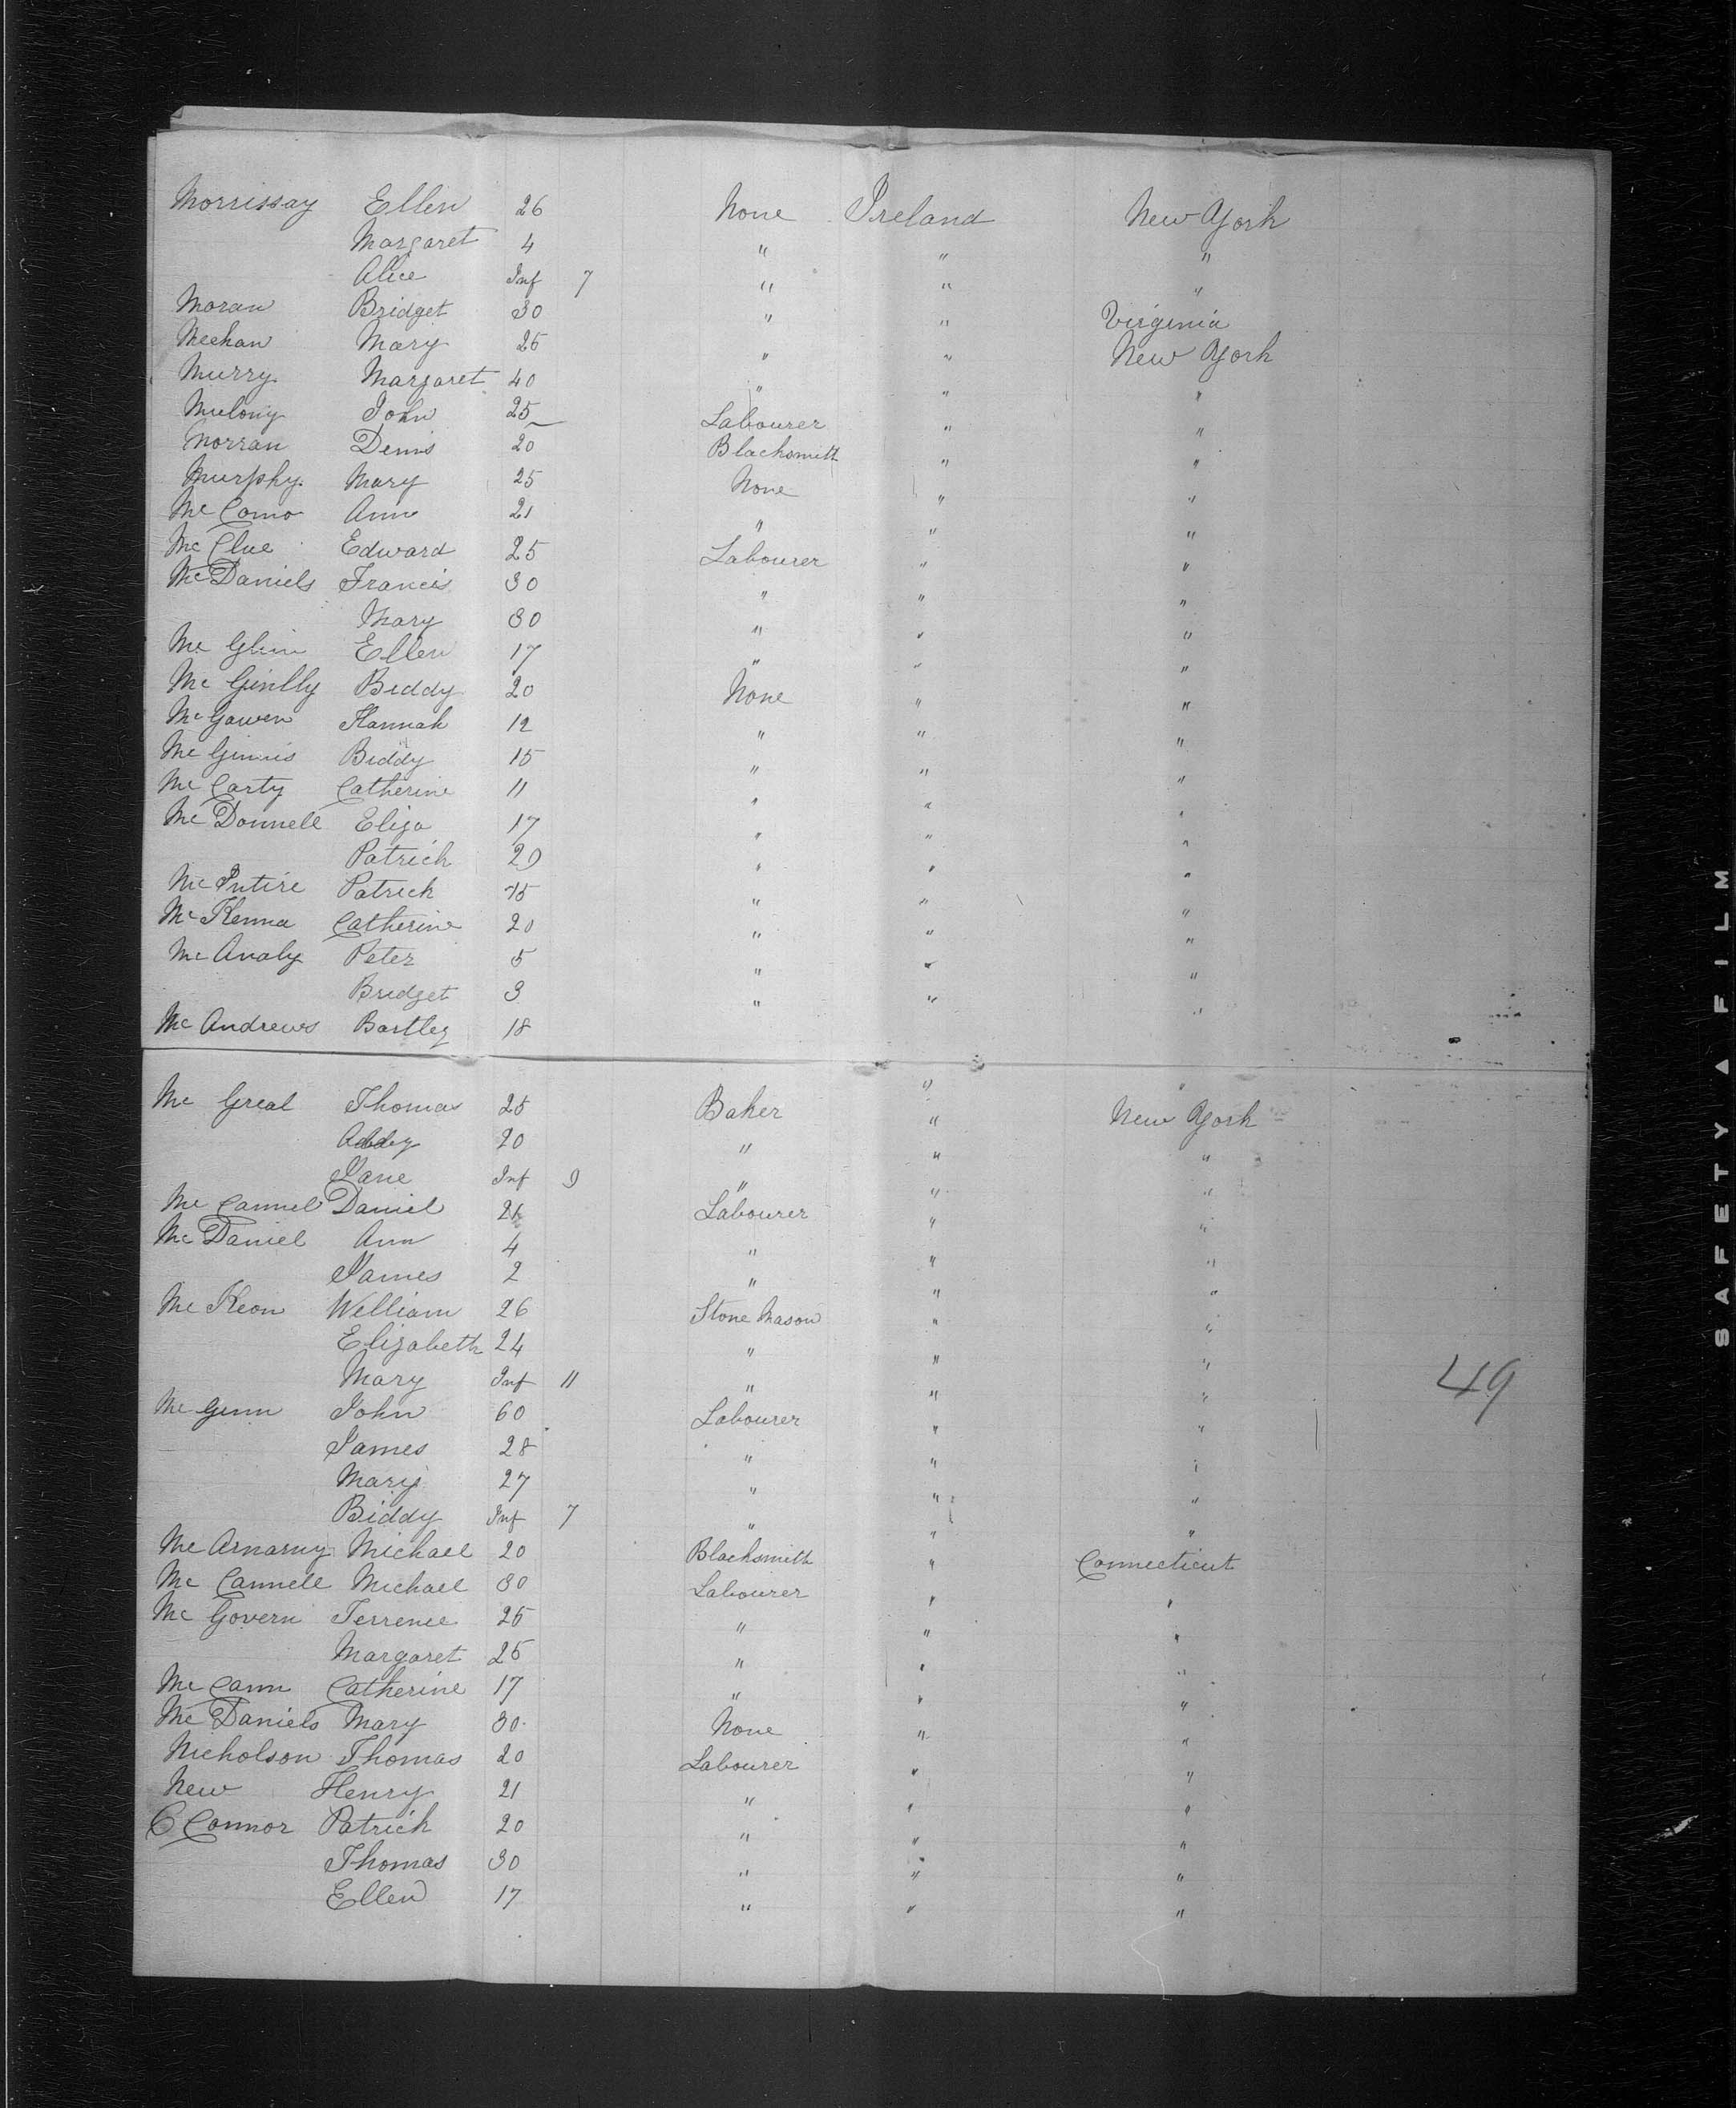 Morrissay Ellen 26 None Ireland New York
Margaret 4 " " "
Alice Inf 7 " " "
Moran Bridget 30 " " Virginia
Meehan Mary 25 " " New York
Murry Margaret 40 " " "
Mulony John 25 Labourer " "
Morran Denis 20 Blacksmith " "
Murphy. Mary 25 None " "
Mc Como Ann 21 " " "
Mc Clue Edward 25 Labourer " "
Mc Daniels Francis 30 " " "
Mary 30 " " "
Mc Glinn Ellen 17 " " "
Mc Ginlly Biddy 20 None " "
Mc Gawen Hannah 12 " " "
Mc Ginnis Biddy 15 " " "
Mc Carty Catherine 11 " " "
Mc Donnell Eliza 17 " " "
Patrick 20 " " "
Mc Intire Patrick 75 " " "
Mc Kenna Catherine 20 " " "
Mc Analy Peter 5 " " "
Bridget 3 " " "
Mc Andrews Bartley 18 " "
Mc Greal Thomas 25 Baker " New York
Abby 20 " " "
Jane Inf 9 " " "
Mc Cannel Daniel 21 Labourer " "
Mc Daniel Ann 4 " " "
James 2 " " "
Mc Keon William 26 Stone Mason " "
Elizabeth 24 " " "
Mary Inf 11 " " "
Mc Ginn John 60 Labourer " "
James 28 " " "
Mary 27 " " "
Biddy Inf 7 " " "
Mc Arnarny Michael 20 Blacksmith " Connecticut
Mc Cannell Michael 30 Labourer " "
Mc Govern Terrence 25 " " "
Margaret 25 " " "
Mc Cann Catherine 17 " " "
Mc Daniels Mary 30 None " "
Nicholson Thomas 20 Labourer " "
New Henry 21 " " "
O Connor Patrick 20 " " "
Thomas 30 " " "
Ellen 17 " " "
49
SAFETY A FILM